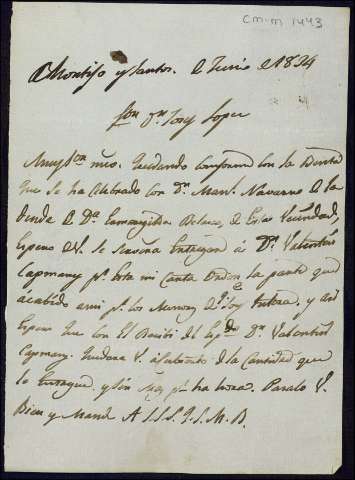 CM-M 1443
Montijo y Junio de 1834
Sor Dn Josy Lopez
Muy Sor mio. Quedando conforme con la Benta
que se ha celebrado con Dn Manl Navarro de la
de Da de esta Vecindad,
espero de V. se sirva entregar á Dn Valentin
Capmany pr esta mi Carta Orden la parte que
a mi pr los y asi
espero que con el Recibí del Dn Valentin
Capmany. Quedara V. de la Cantidad que
le entregue. y sin mas pr ha hora. Paselo V.
Bien y Mande A S.S.S.Q.S.M.B.